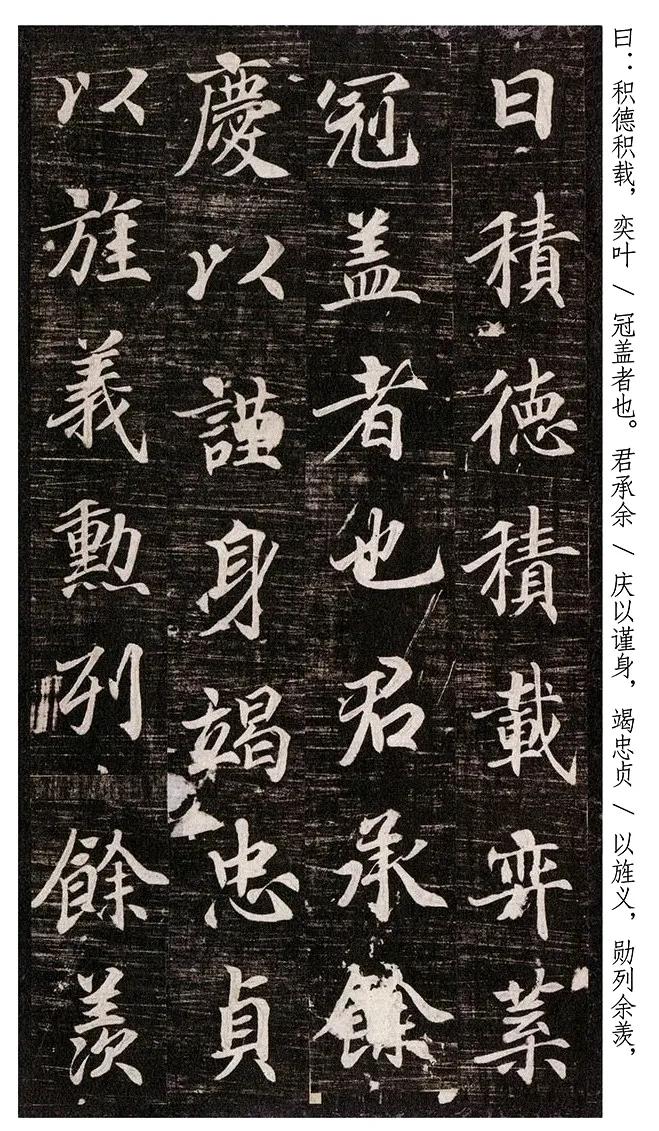 曰：积德积载，奕叶／冠盖者也。君承余／庆以谨身，竭忠贞／以旌义，勋列余羡，
曰積德積載弈葉
冠盖者也君承餘
慶以謹身竭忠貞
以旌義勳列餘羨